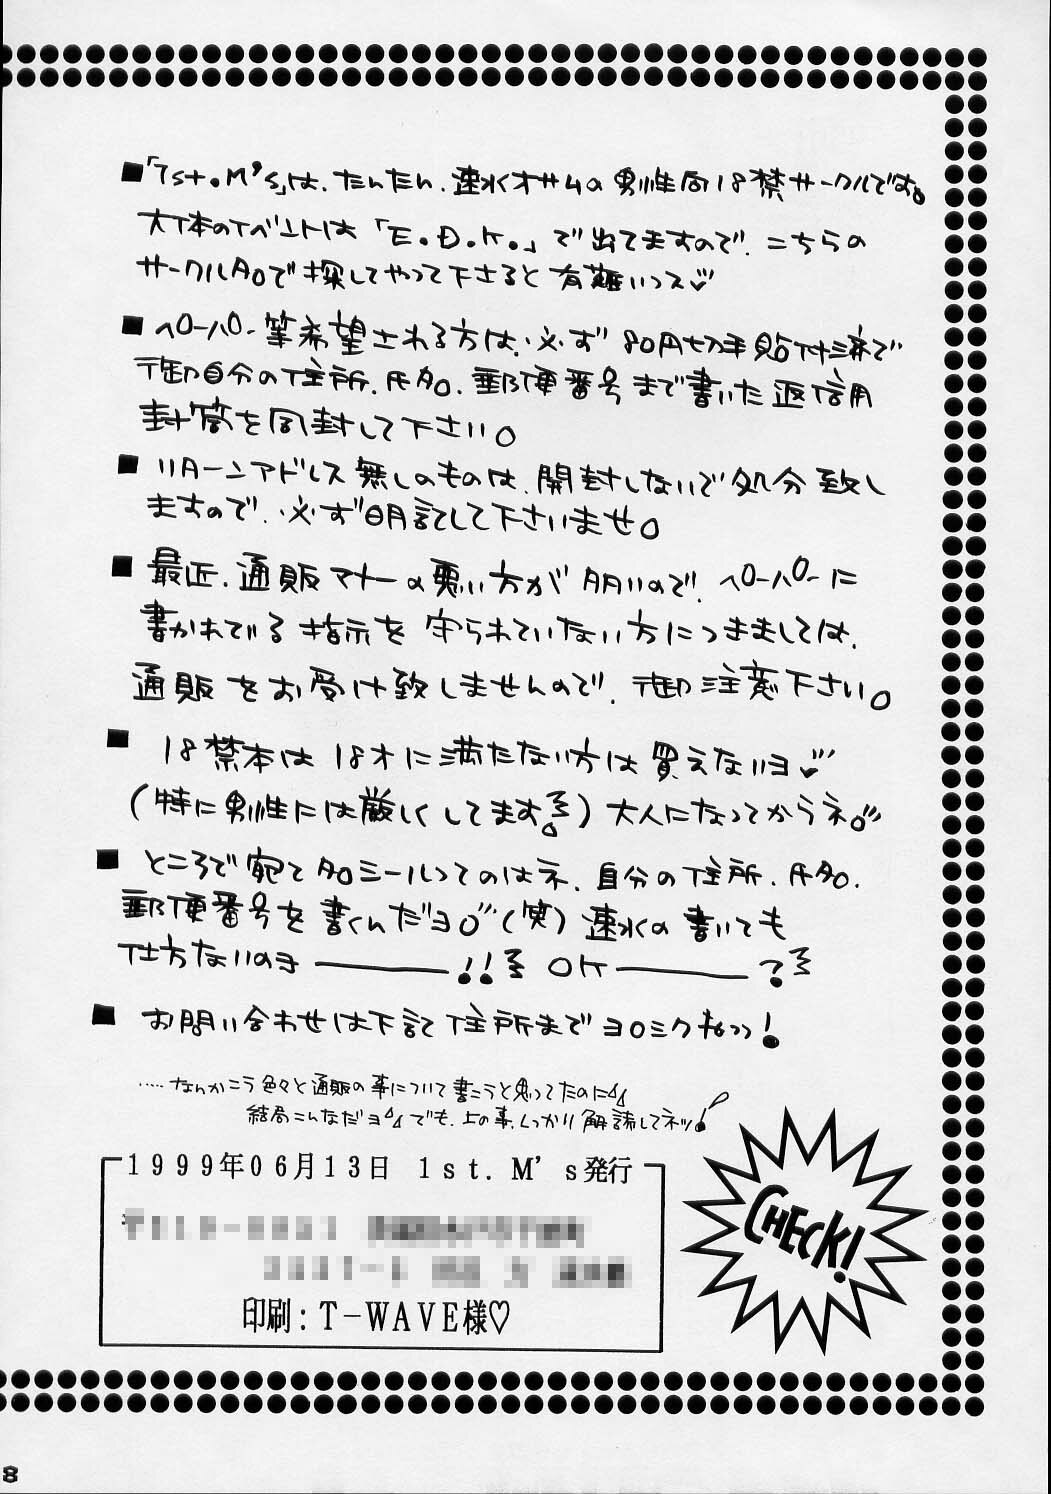 ■「1st.M's」は、たんたん、速水オサムの男性向18禁サークルです。
大体のイベントは「E.D.K.」で出てますので、こちらの
サークル名で探してやって下さると有難いっス♡
■ペーパー等希望される方は、必ず80円切手貼付済で
御自分の住所、氏名、郵便番号まで書いた返信用
封筒を同封して下さい。
■リターンアドレス無しのものは、開封しないで処分致し
ますので、必ず明記して下さいませ。
■最近、通販マナーの悪い方が多いので、ペーパーに
書かれている指示を守られていない方につきましては、
通販をお受け致しませんので、御注意下さい。
■18禁本は18才に満たない方は買えないヨ♡
(特に男性には厳しくしてます!)大人になってからネ。
■ところで宛て名シールってのはネ、自分の住所、氏名、
郵便番号を書くんだヨ。(笑)速水の書いても
仕方ないのヨ――!! OK――?
■お問い合わせは下記住所までヨロシクねっっ!
……なんかこう色々と通販の事について書こうと思ってたのに
結局こんなだヨ でも、上の事、しっかり解読してネッ!
1999年06月13日 1st. M's発行
印刷:T-WAVE様♡
CHECK!
8